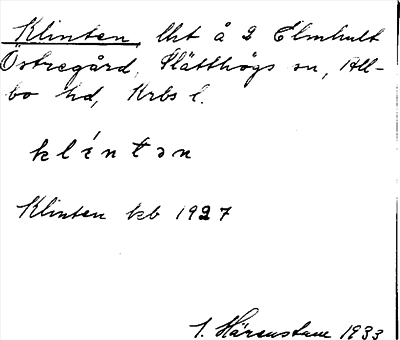 Klinten, lht å 2 Elmhult
Östregård, Slätthögs sn, All-
bo hd, Krbs l.
klíntən
Klinten kb 1927
I. Härenstam 1933